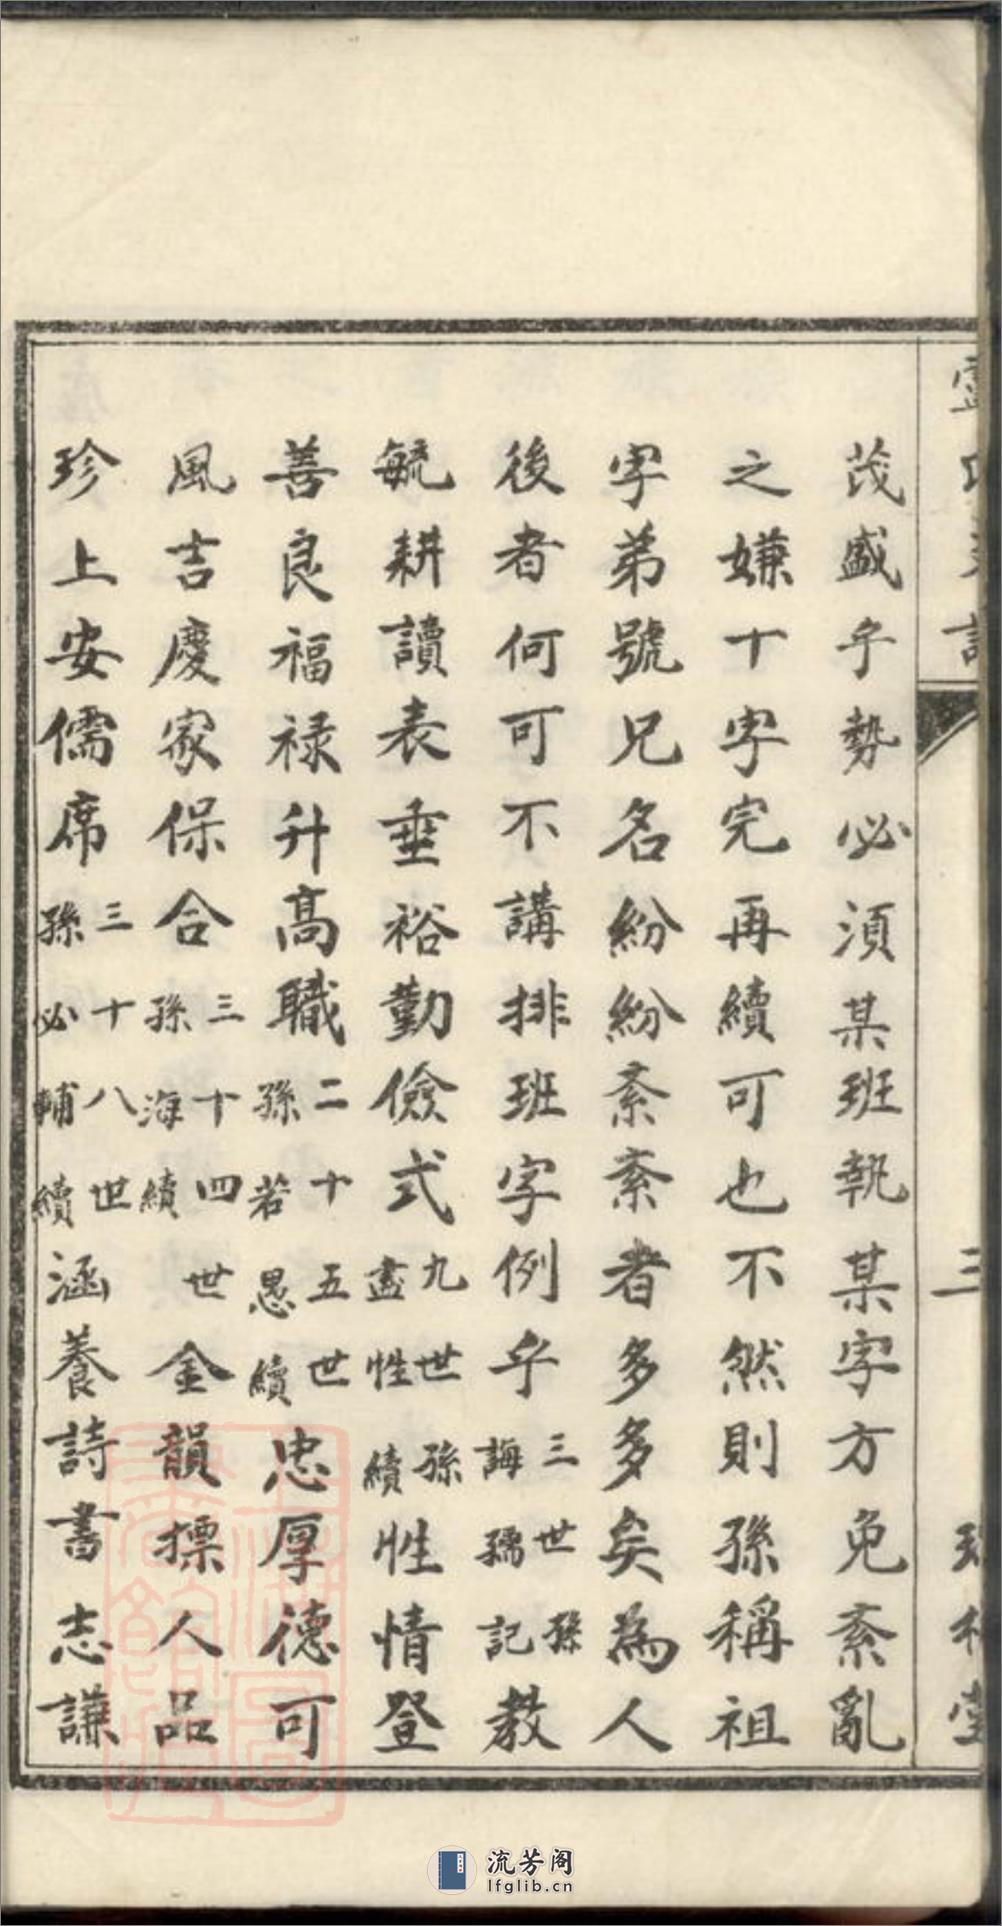 三
茂盛乎勢必須某班執某字方免紊亂
之嫌十字完再續可也不然則孫稱祖
字弟號兄名紛紛紊紊者多多矣為人
後者何可不講排班字例乎三世孫誨孺記教
毓耕讀表垂裕勤儉式九世孫盡性續性情登
善良福禄升高職二十五世孫若愚續忠厚德可
風吉慶家保合三十四世孫海續金韻摽人品
珍上安儒席三十八世孫必輔續涵養詩書志謙
流芳阁
lfglib.cn